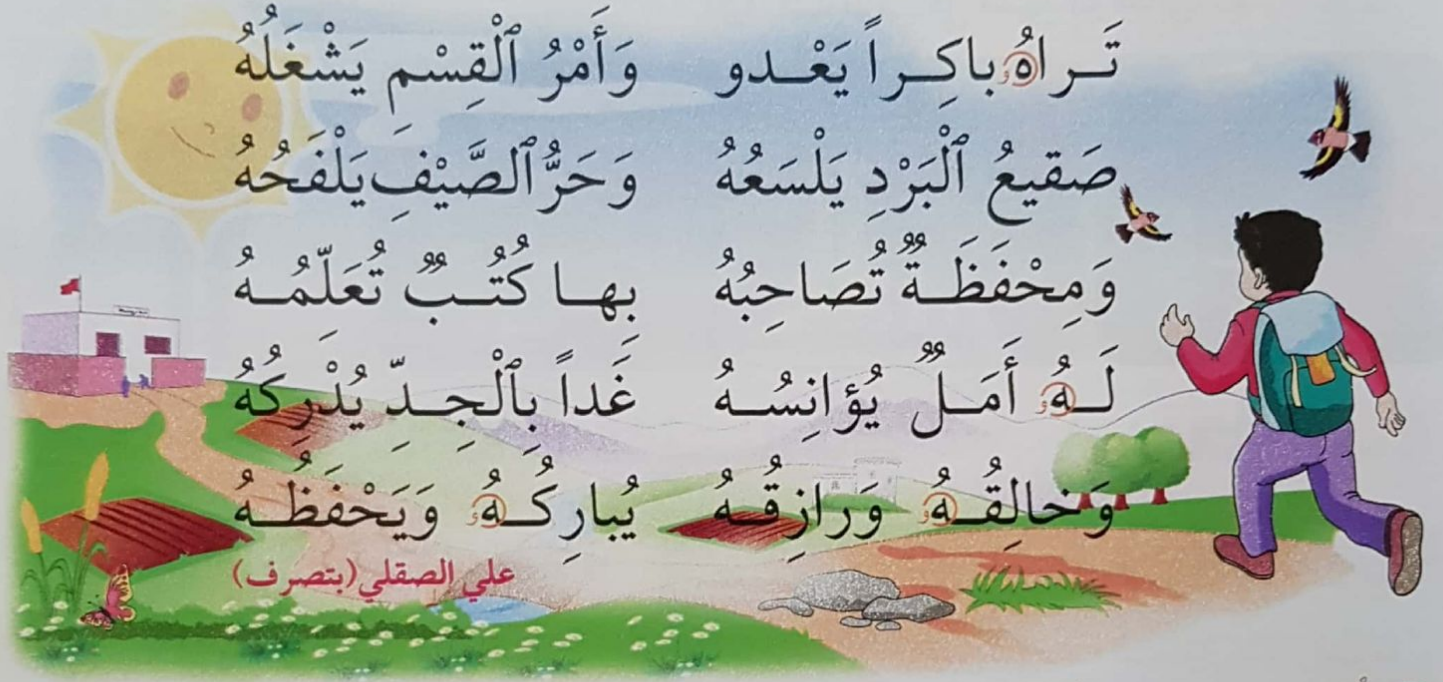 تَــراهُ باكِــراً يَعْــدو وَأَمْرُ ٱلْقِسْمِ يَشْغَلُهُ
صَقيعُ ٱلْبَرْدِ يَلْسَعُهُ وَحَرُّ ٱلصَّيْفِ يَلْفَحُهُ
وَمِحْفَظَــةٌ تُصَاحِبُهُ بِهــا كُتُــبٌ تُعَلِّمُــهُ
لَــهُ أَمَــلٌ يُؤانِسُــهُ غَداً بِٱلْجِــدِّ يُدْرِكُهُ
وَخالِقُــهُ وَرازِقُــهُ يُبارِكُــهُ وَيَحْفَظُــهُ
علي الصقلي (بتصرف)